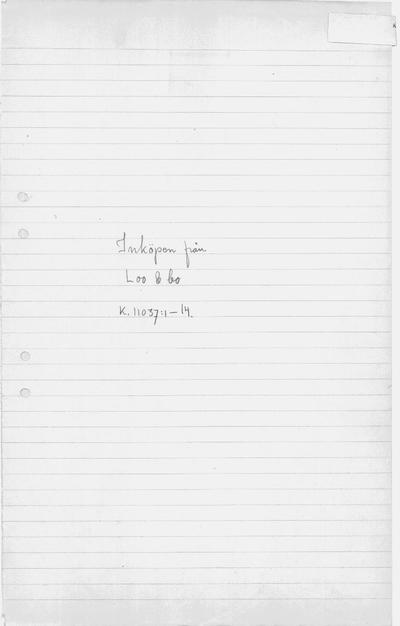 Inköpen från
Loo & Co
K. 11037:1-14.